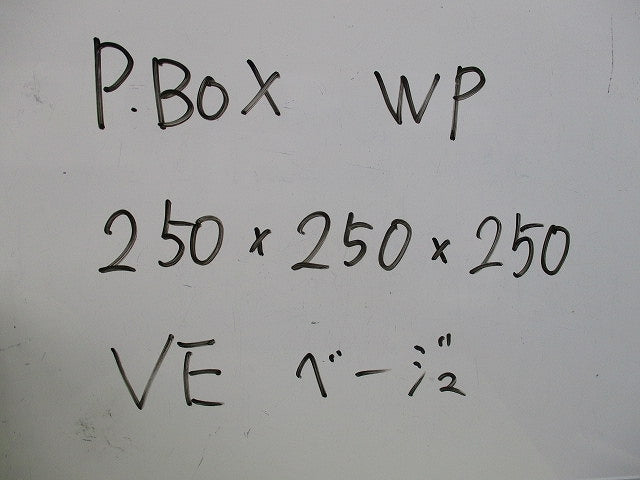 P.BOX WP
250×250×250
VE ベージュ